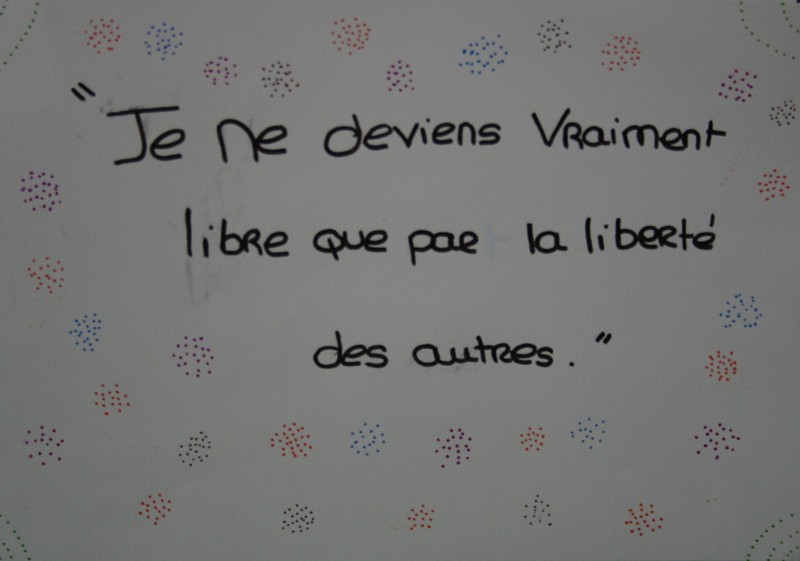 "Je ne deviens vraiment
libre que par la liberté
des autres."